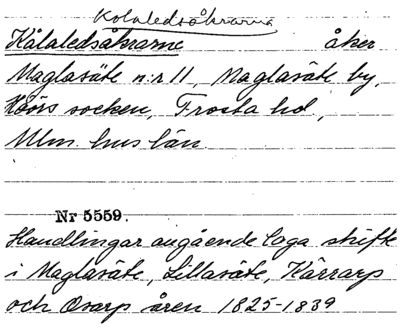 Kolaledsåkrarna
Kålaledsåkrarne åker
Maglasäte n:r 11, Maglasäte by,
Höörs socken, Frosta hd,
Mlm. hus län.
Nr 5559.
Handlingar angående laga skifte
i Maglasäte, Lillasäte, Kärrarp
och Orarp åren 1825-1839